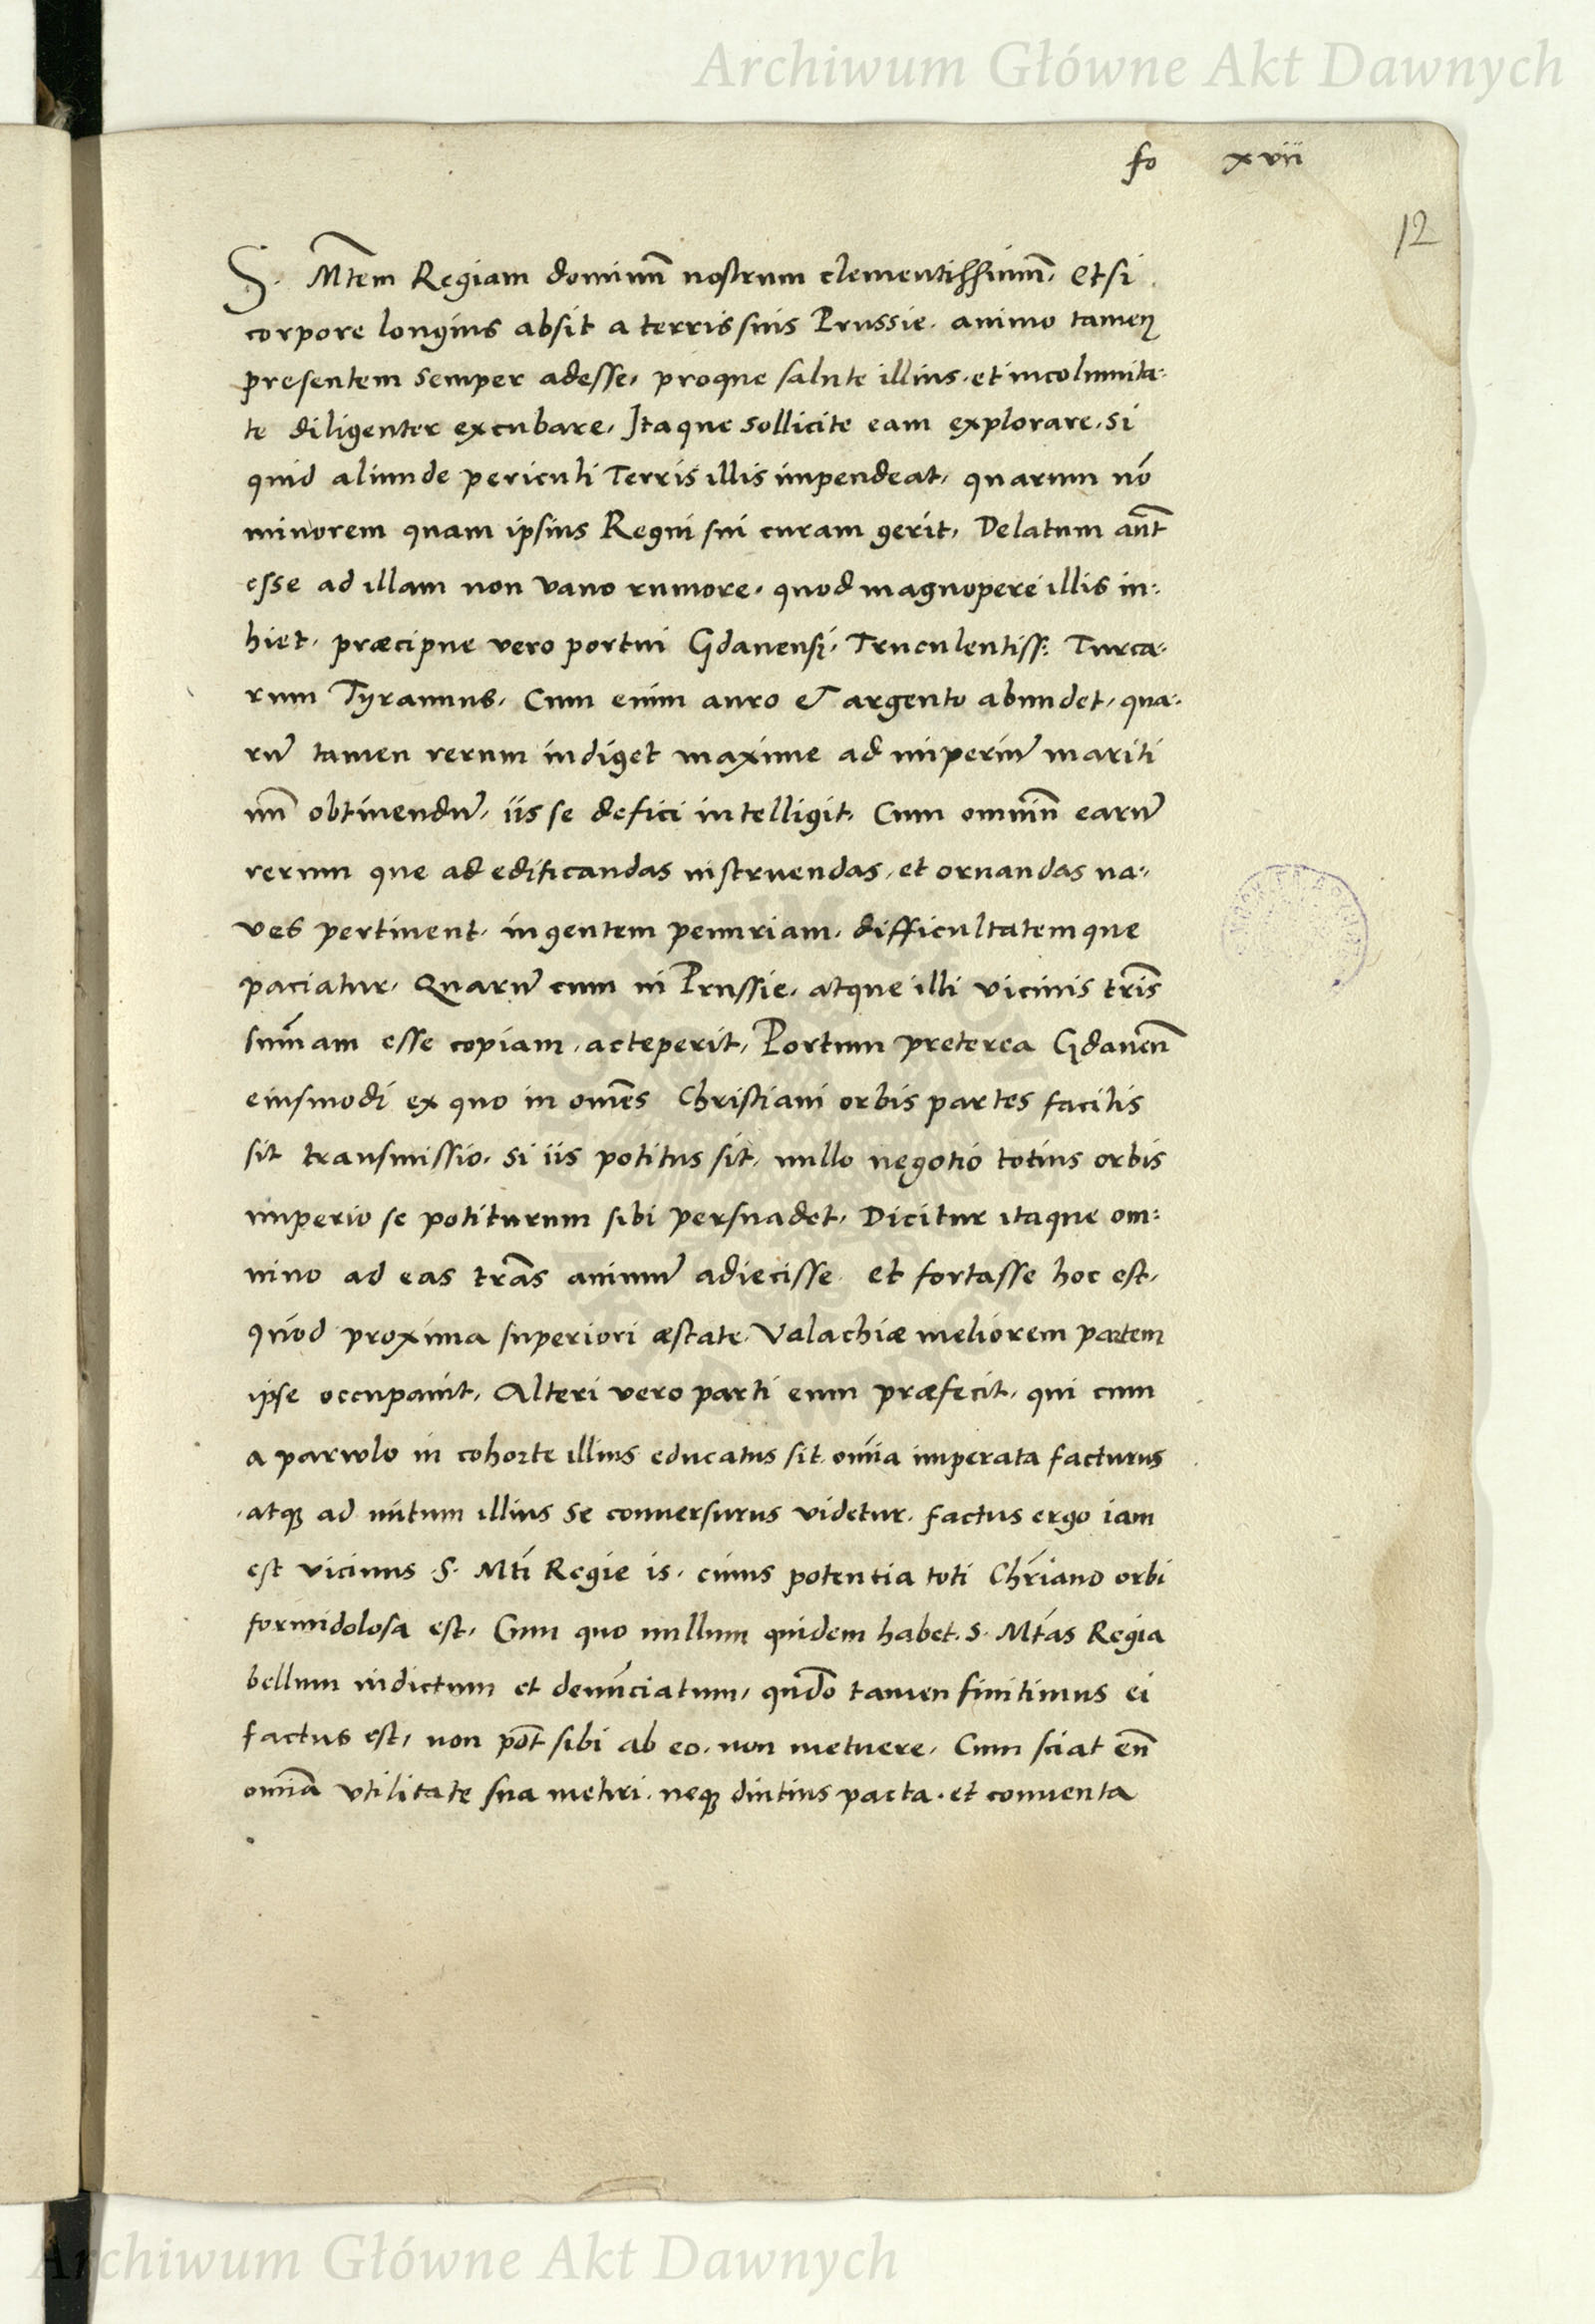 Archiwum Główne Akt Dawnych
fo xvii
12
S. Mtem Regiam dominũ nostrum clementissimũ, etsi
corpore longius absit a terris suis Prussie, animo tamen
presentem semper adesse, proque salute illius, et incolumita-
te diligenter excubare, Itaque sollicite eam explorare, si
quid aliunde periculi Terris illis impendeat, quarum nõ
minorem quam ipsius Regni sui curam gerit, Delatum aũt
esse ad illam non vano rumore, quod magnopere illis in:
hiet, præcipue vero portui Gdanensi, Truculentiss: Turca-
rum Tyrannus, Cum enim auro et argento abundet, qua-
rũ tamen rerum indiget maxime ad imperiũ mariti
mũ obtinendũ, iis se defici intelligit, Cum omniũ earũ
rerum que ad edificandas instruendas, et ornandas na-
ves pertinent, ingentem penuriam, difficultatemque
paciatur, Quarũ cum in Prussie, atque illi vicinis tris̃
sum̃am esse copiam, acceperit, Portum preterea Gdaneñ
eiusmodi ex quo in om̃es Christiani orbis partes facilis
sit transmissio, si iis potitus sit, nullo negotio totius orbis
imperio se potiturum sibi persuadet, Dicitur itaque om:
nino ad eas trãs animũ adiecisse et fortasse hoc est,
quod proxima superiori æstate Valachiæ meliorem partem
ipse occupauit, Alteri vero parti eum præfecit, qui cum
a parvulo in cohorte illius educatus sit, om̃ia imperata facturus
atqꝫ ad nutum illius se conuersurus videtur, factus ergo iam
est vicinus S. Mti Regie is, cuius potentia toti Chr̃iano orbi
formidolosa est, Cum quo nullum quidem habet S. Mtas Regia
bellum indictum et denũciatum, qũdo tamen finitimus ei
factus est, non põt sibi ab eo, non metuere, Cum sciat eñ
om̃ia vtilitate sua metiri, neqꝫ diutius pacta, et conuenta
Archiwum Główne Akt Dawnych